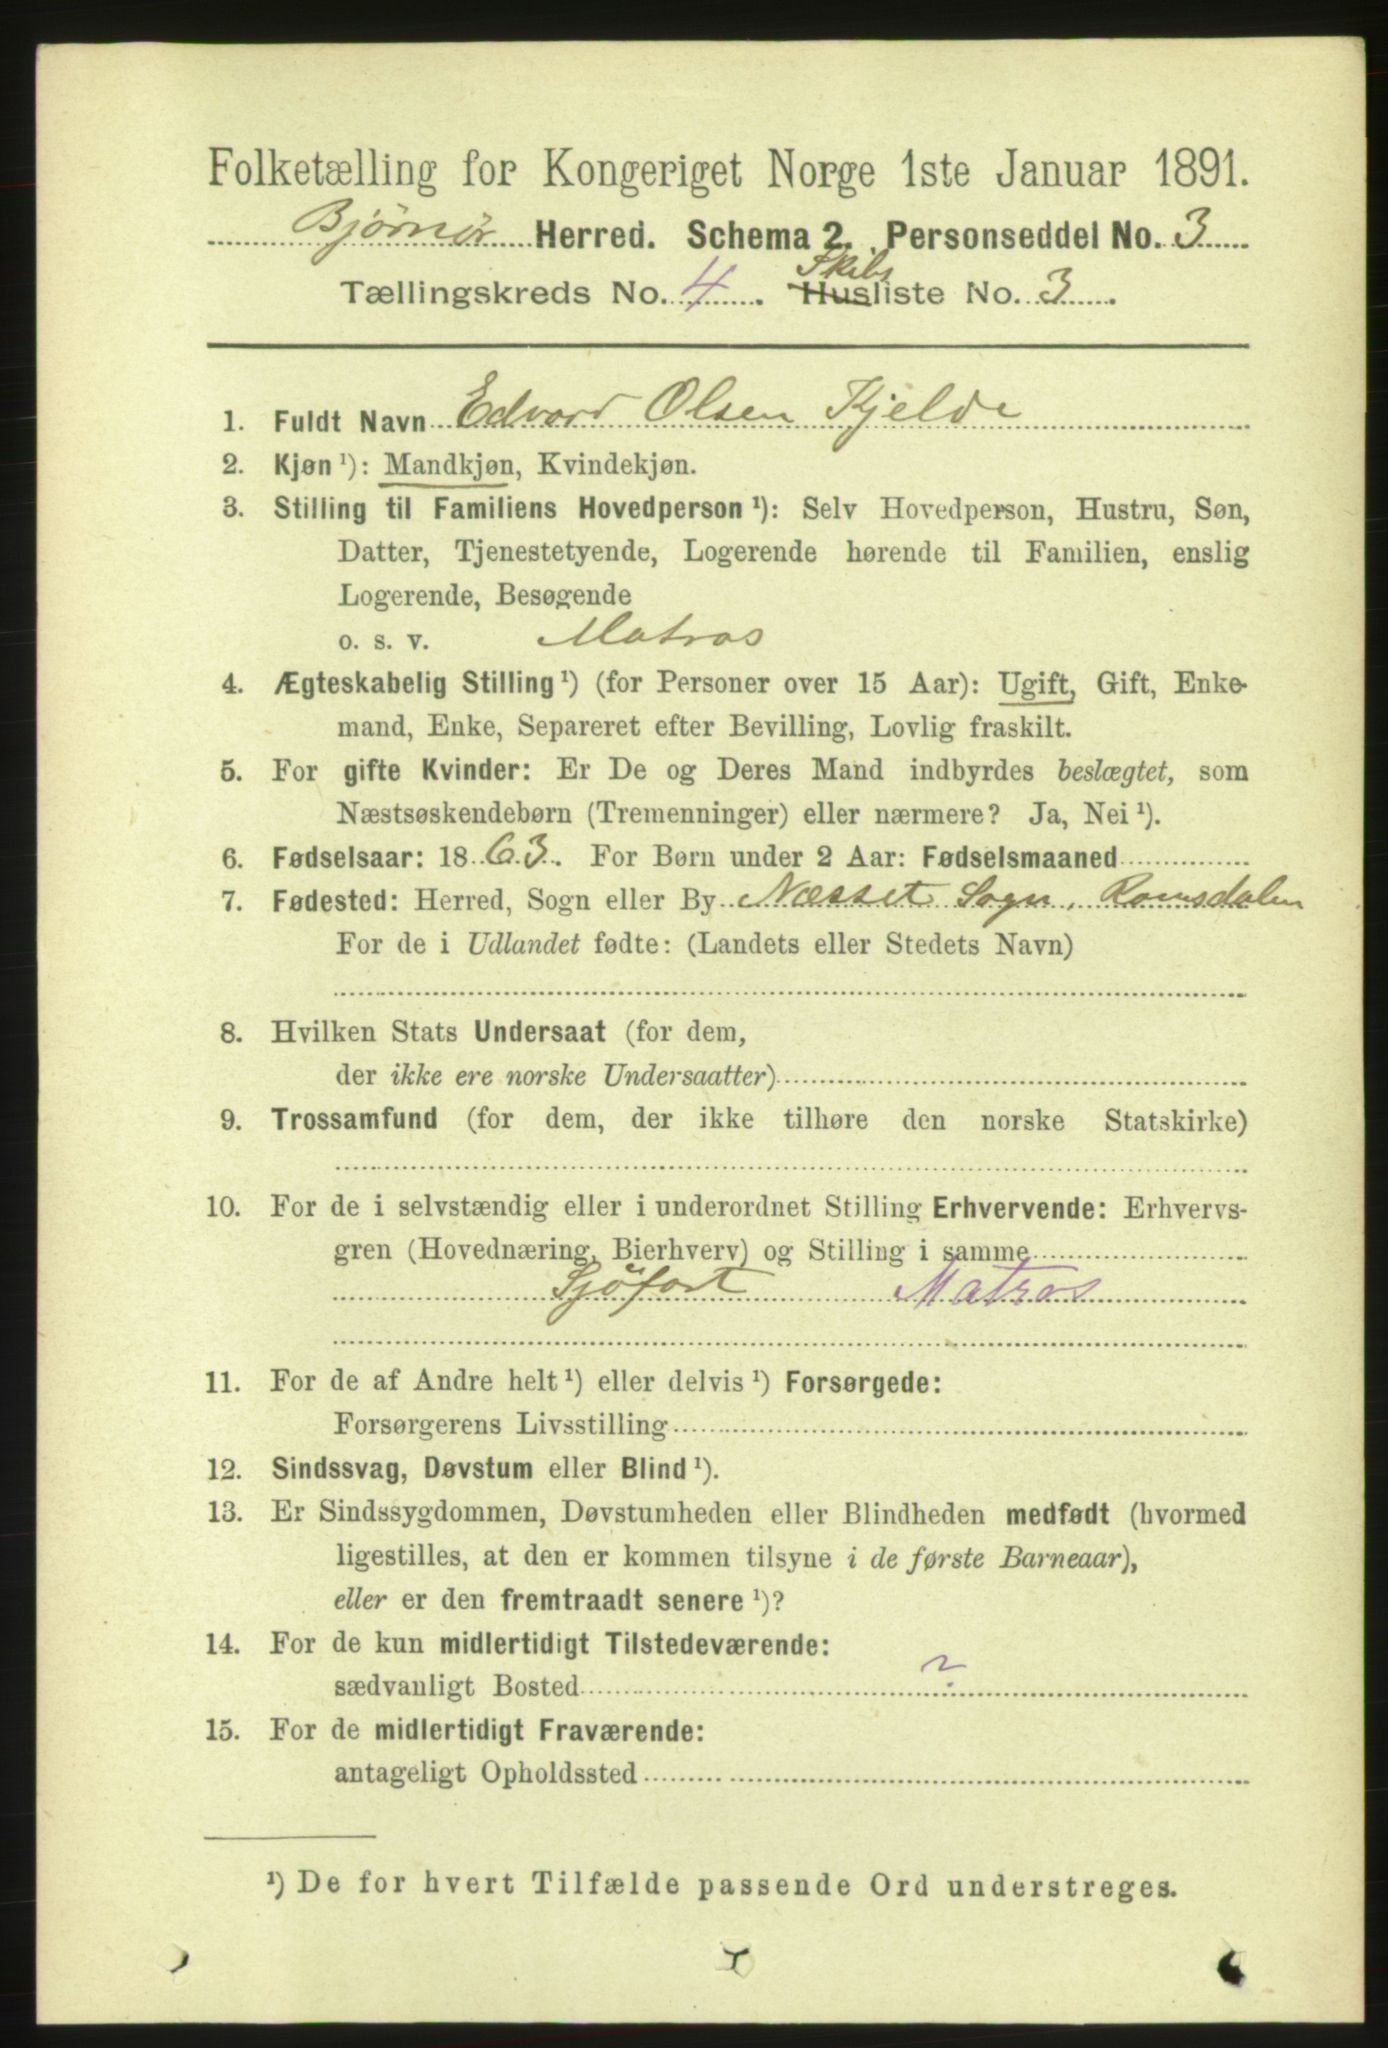 Folketælling for Kongeriget Norge 1ste Januar 1891.
Bjørnør Herred. Schema 2. Personseddel No. 3
Skibs
Tællingskreds No. 4. Husliste No. 3.
1. Fuldt Navn Edvard Olsen Kjelde
2. Kjøn ¹): Mandkjøn, Kvindekjøn.
3. Stilling til Familiens Hovedperson ¹): Selv Hovedperson, Hustru, Søn,
Datter, Tjenestetyende, Logerende hørende til Familien, enslig
Logerende, Besøgende
o. s. v. Matros
4. Ægteskabelig Stilling ¹) (for Personer over 15 Aar): Ugift, Gift, Enke-
mand, Enke, Separeret efter Bevilling, Lovlig fraskilt.
5. For gifte Kvinder: Er De og Deres Mand indbyrdes beslægtet, som
Næstsøskendebørn (Tremenninger) eller nærmere? Ja, Nei ¹).
6. Fødselsaar: 1863. For Børn under 2 Aar: Fødselsmaaned
7. Fødested: Herred, Sogn eller By Næsset Sogn, Romsdalen
For de i Udlandet fødte: (Landets eller Stedets Navn)
8. Hvilken Stats Undersaat (for dem,
der ikke ere norske Undersaatter)
9. Trossamfund (for dem, der ikke tilhøre den norske Statskirke)
10. For de i selvstændig eller i underordnet Stilling Erhvervende: Erhvervs-
gren (Hovednæring, Bierhverv) og Stilling i samme
Sjöfart Matros
11. For de af Andre helt ¹) eller delvis ¹) Forsørgede:
Forsørgerens Livsstilling
12. Sindssvag, Døvstum eller Blind ¹).
13. Er Sindssygdommen, Døvstumheden eller Blindheden medfødt (hvormed
ligestilles, at den er kommen tilsyne i de første Barneaar),
eller er den fremtraadt senere ¹)?
14. For de kun midlertidigt Tilstedeværende:
sædvanligt Bosted ?
15. For de midlertidigt Fraværende:
antageligt Opholdssted
¹) De for hvert Tilfælde passende Ord understreges.